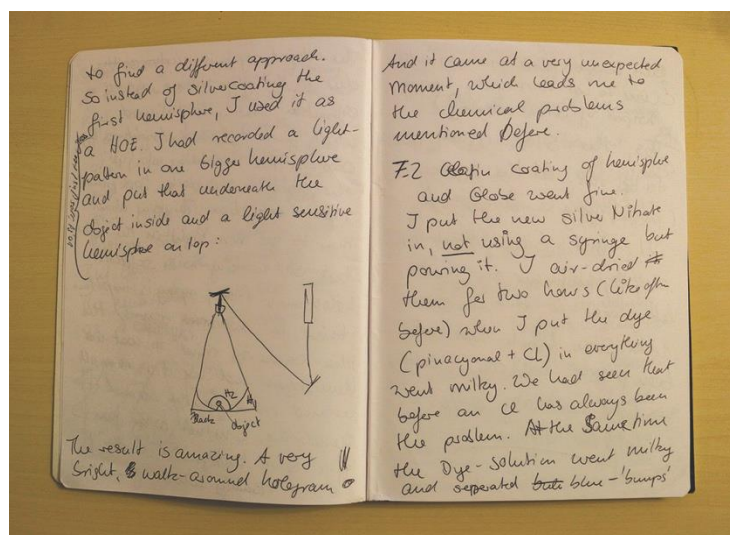 to find a different approach.
So instead of silvercoating the
first hemisphere, I used it as
a HOE. I had recorded a light-
pattern in one bigger hemisphere
and put that underneath the
object inside and a light sensitive
hemisphere on top:
H2
H1
black
object
The result is amazing. A very
bright, walk-around hologram
And it came at a very unexpected
moment, which leads me to
the chemical problems
mentioned before.
7.2 Gelatin coating of hemisphere
and Globe went fine.
I put the new silver Nitrate
in, not using a syringe but
pouring it. I air-dried
them for two hours (like often
before) when I put the dye
(pinacyanol + CL) in everything
went milky. We had seen that
before an CL has always been
the problem. At the Same time
the Dye-solution went milky
and seperated blue-'bumps'